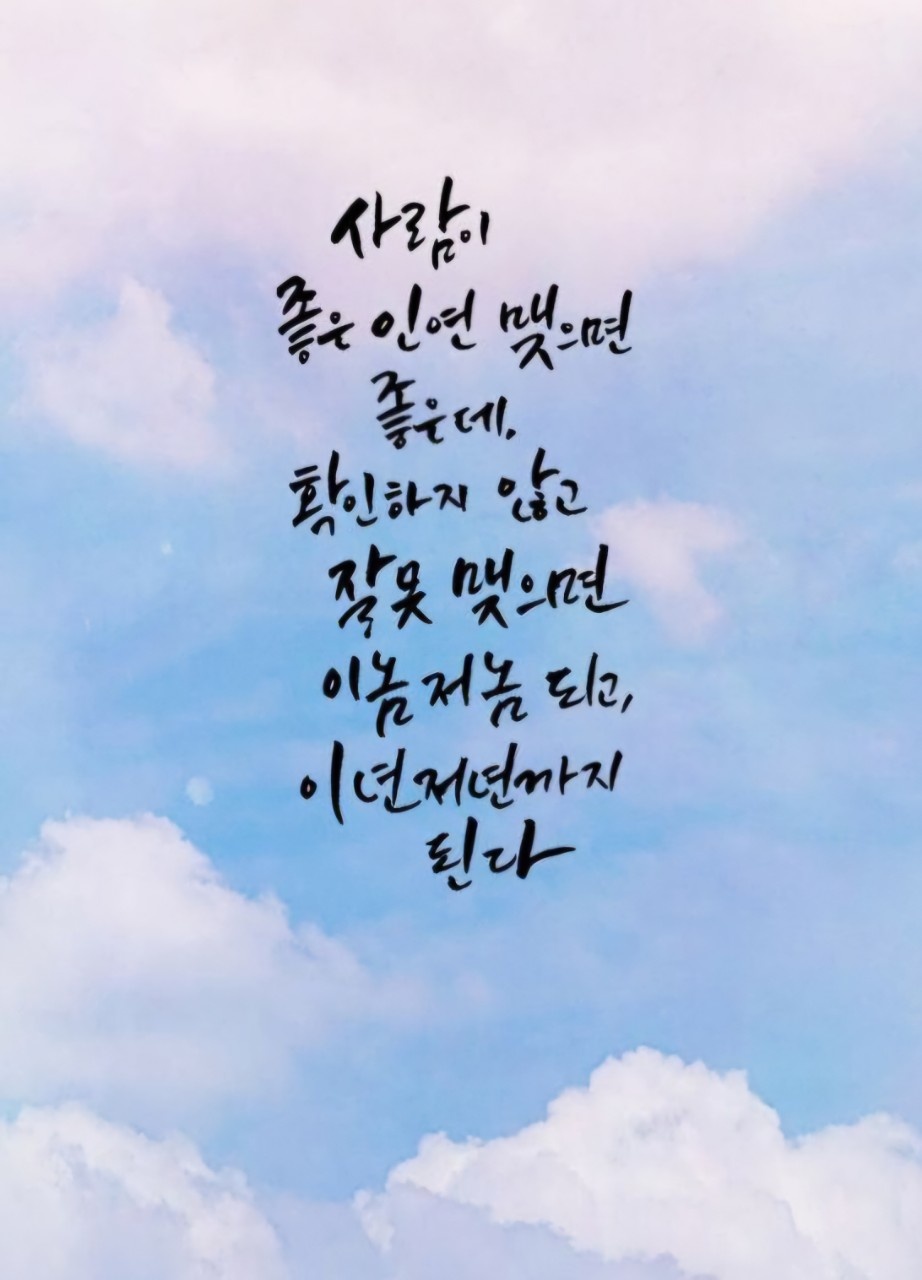 사람이
좋은 인연 맺으면
좋은데,
확인하지 않고
잘못 맺으면
이놈저놈 되고,
이년저년까지
된다